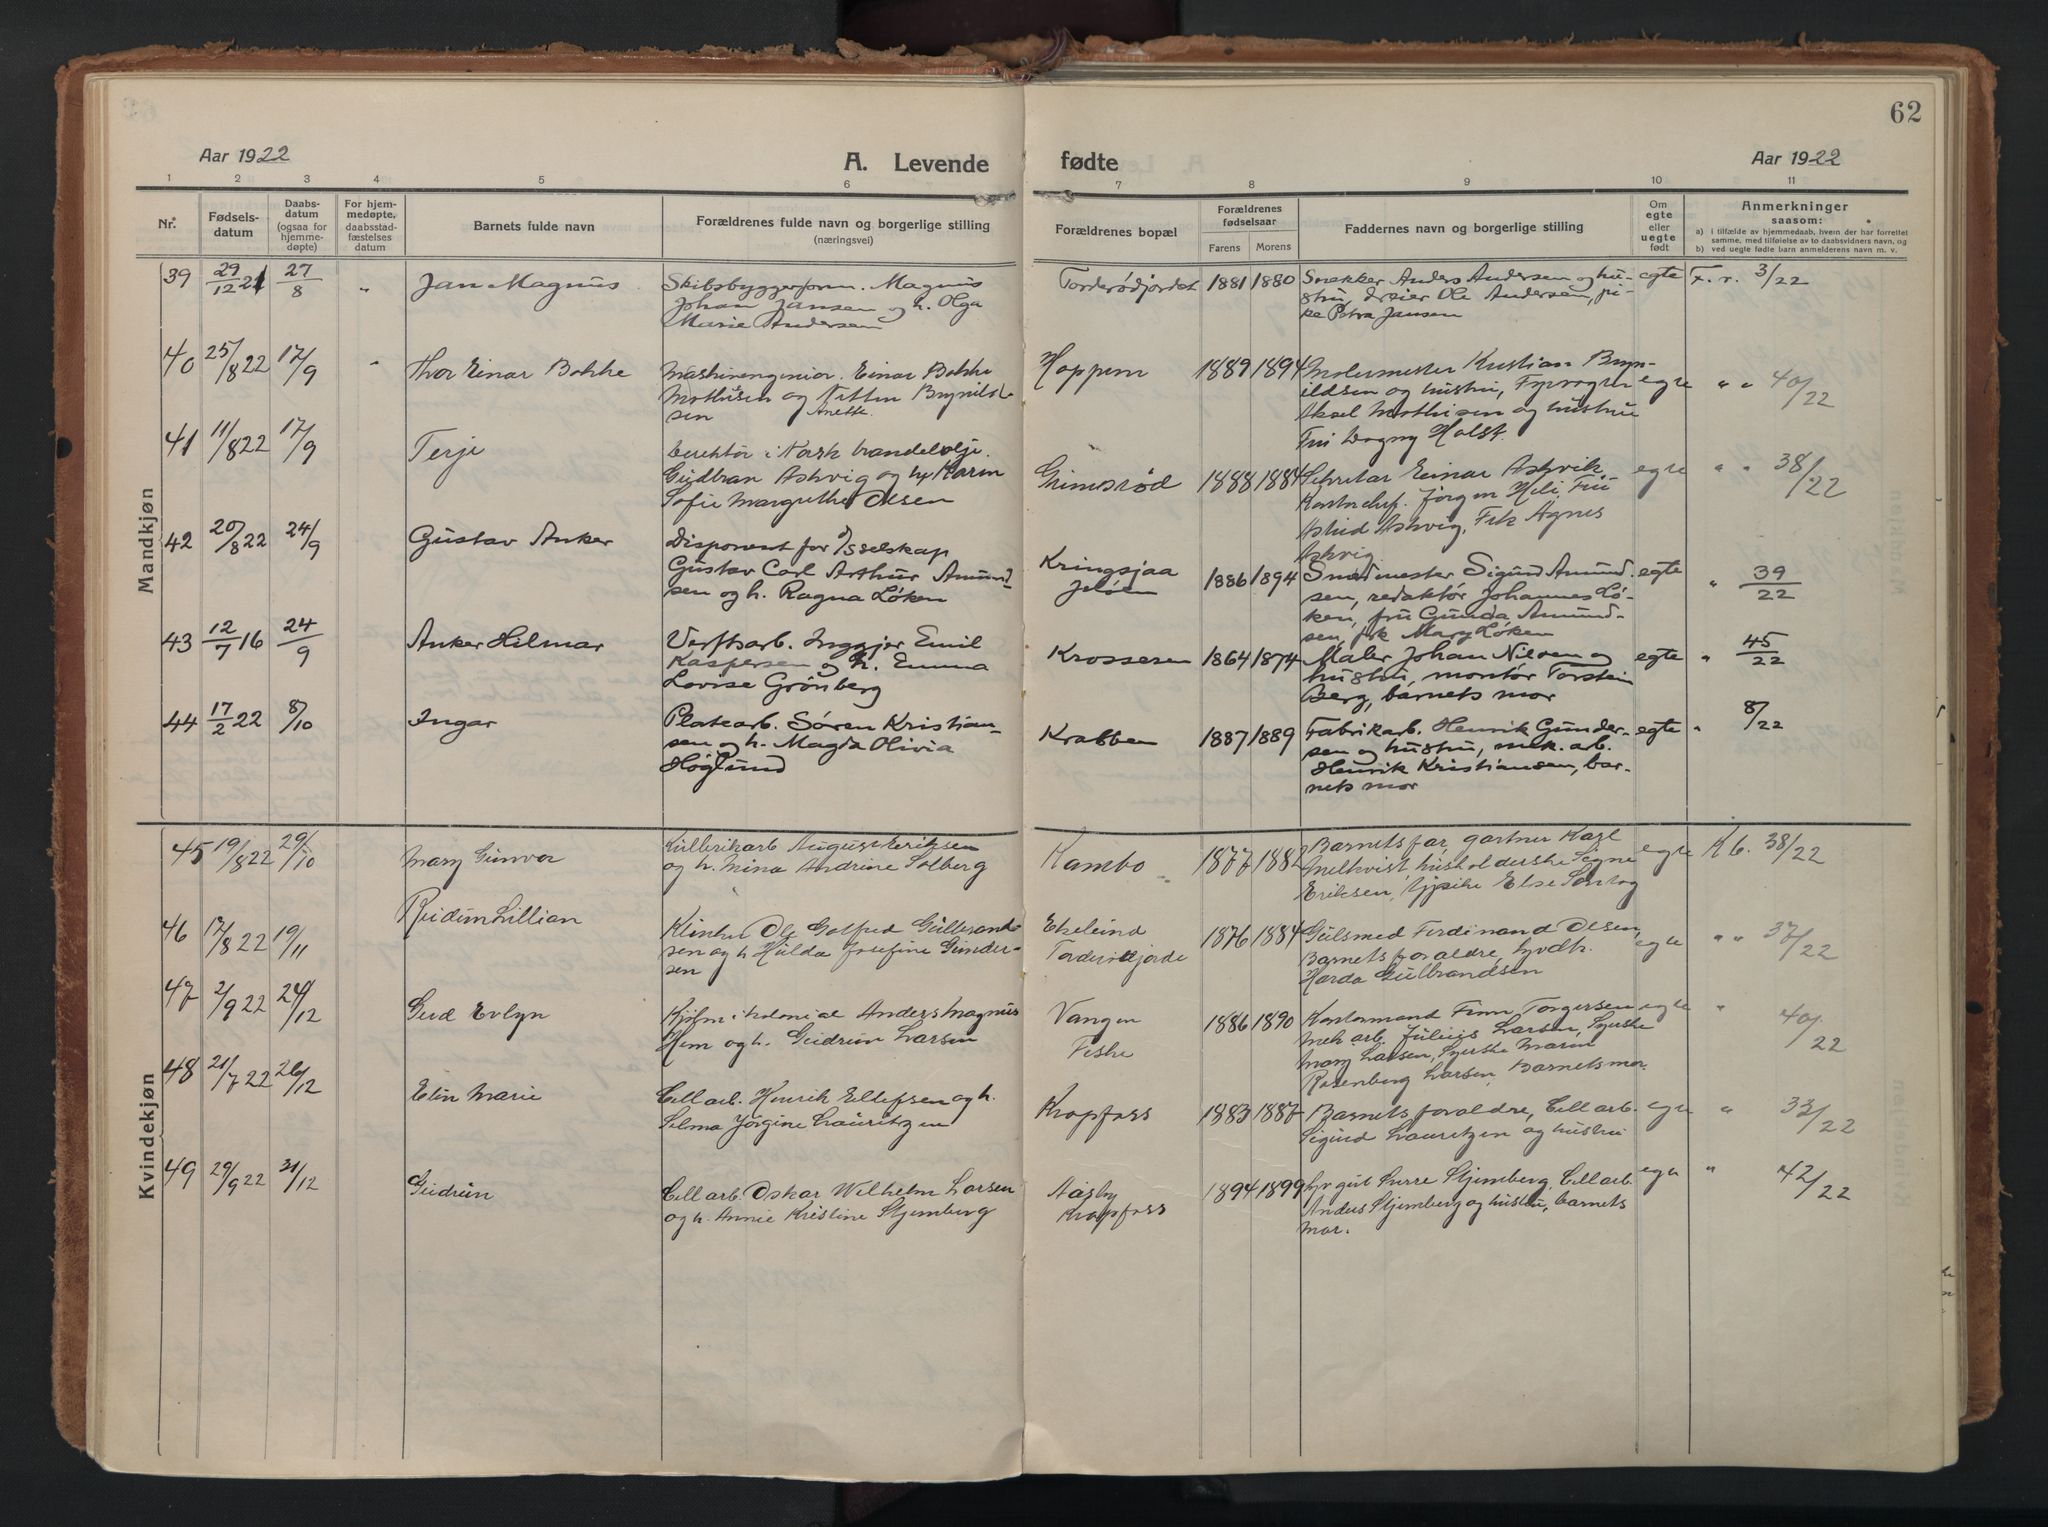 62
Aar 1922
A. Levende
fødte
Aar 1922
1 2 3 4 5 6 7 8 9 10 11
Nr.
Fødsels-
datum
Daabs-
datum
(ogsaa for
hjemme-
døpte)
For hjem-
medøpte,
daabsstad-
fæstelses
datum
Barnets fulde navn
Forældrenes fulde navn og borgerlige stilling
(næringsvei)
Forældrenes bopæl
Forældrenes
fødselsaar
Farens Morens
Faddernes navn og borgerlige stilling
Om
egte
eller
uegte
født
Anmerkninger
saasom:
a) i tilfælde av hjemmedaab, hvem der har forrettet
samme, med tilføielse av to daabsvidners navn, og
b) ved uegte fødte barn anmelderens navn m. v.
Mandkjøn
39 29/12 21 27/8 " Jan Magnus
Skibsbyggerform. Magnus
Johan Jansen og h. Olga
Marie Andersen
Torderødjordet 1881 1880
Snekker Anders Andersen og hu-
stru, dreier Ole Andersen, pi-
ke Petra Jansen
egte F. r. 3/22
40 25/8 22 17/9 " Thor Einar Bakke
Maskiningeniør Einar Bakke
Mathisen og Brynild-
sen Anette
Hoppern 1889 1894
Kristian Bryn-
ildsen og hustru, Fyrvogter
Aksel Mathisen og hustru
Fru Dagny Holst.
egte " " 40/22
41 11/8 22 17/9 Terje
Direktør i Norsk
Gudbran Askvig og h. Karin
Sofie Margrethe Olsen
Grimsrød 1888 1884
Sekretær Einar Askvik
Kontorchef. Jørgen Fru
Astrid Askvig, Frk Agnes
Askvig.
egte " " 38/22
42 20/8 22 24/9 Gustav Anker
Disponent for
Gustav Carl Arthur Amund-
sen og h. Ragna Løken
Kringsjaa
Jeløen
1886 1894
Smedmester Sigurd Amund-
sen, redaktør Johannes Lø-
ken, fru Gunda Amund-
sen, frk Mary Løken
egte " 39/22
43 12/7 16 24/9 Anker Hilmar
Verftsarb. Inggjer Emil
Kaspersen og h. Emma
Lovise Grønberg
Krosseren 1864 1874
Maler Johan Nilsen og
hustru, montør Torstein
Berg, barnets mor
egte " 45/22
44 17/2 22 8/10 Ingar
Platearb. Søren Kristian-
sen og h. Magda Olivia
Høglund
Krabben 1887 1889
Fabrikarb. Henrik Gunder-
sen og hustru, mek. arb.
Henrik Kristiansen, bar-
nets mor
egte " 8/22
Kvindekjøn
45 19/8 22 29/10 Mary Gunvor
August Eriksen
og h. Mina Andrine Solberg
Kambo 1877 1882
Barnets far, gartner Karl
Melkvist husholderske Signe
Eriksen, Else
egte K b. 38/22
46 17/8 22 19/11 Reidun Lillian
Ole Gotfred Gulbrand-
sen og h Hulda Josefine Gunder-
sen
Ekelund
1876 1884
Gulsmed Ferdinand Olsen,
Barnets foraldre,
Gulbrandsen
egte " " 37/22
47 2/9 22 24/12 Gerd Evlyn
Kjøbm. i kolonial Anders Magnus
Hem og h. Gudrun Larsen
Vangen
1886 1890
Kontormand Finn Torgersen
Mek arb. Julius Larsen,
Mary Larsen,
Rosenberg Larsen, Barnets mor.
egte " 40/22
48 21/7 22 26/12 Elin Marie
Cell arb. Henrik Ellefsen og h.
Selma Jørgine Lauritzen
Kropfoss 1883 1887
Barnets foraldre, Cell arb.
Sigurd Lauritzen og hustru
egte " 33/22
49 29/9 22 31/12 Gudrun
Cell arb. Oskar Wilhelm Larsen
og h. Annie Kristine Stjernberg
Aasby
Kropfoss
1894 1899
Stjernberg, Cell arb
Anders Stjernberg og hustru, barnets
mor.
egte " 42/22